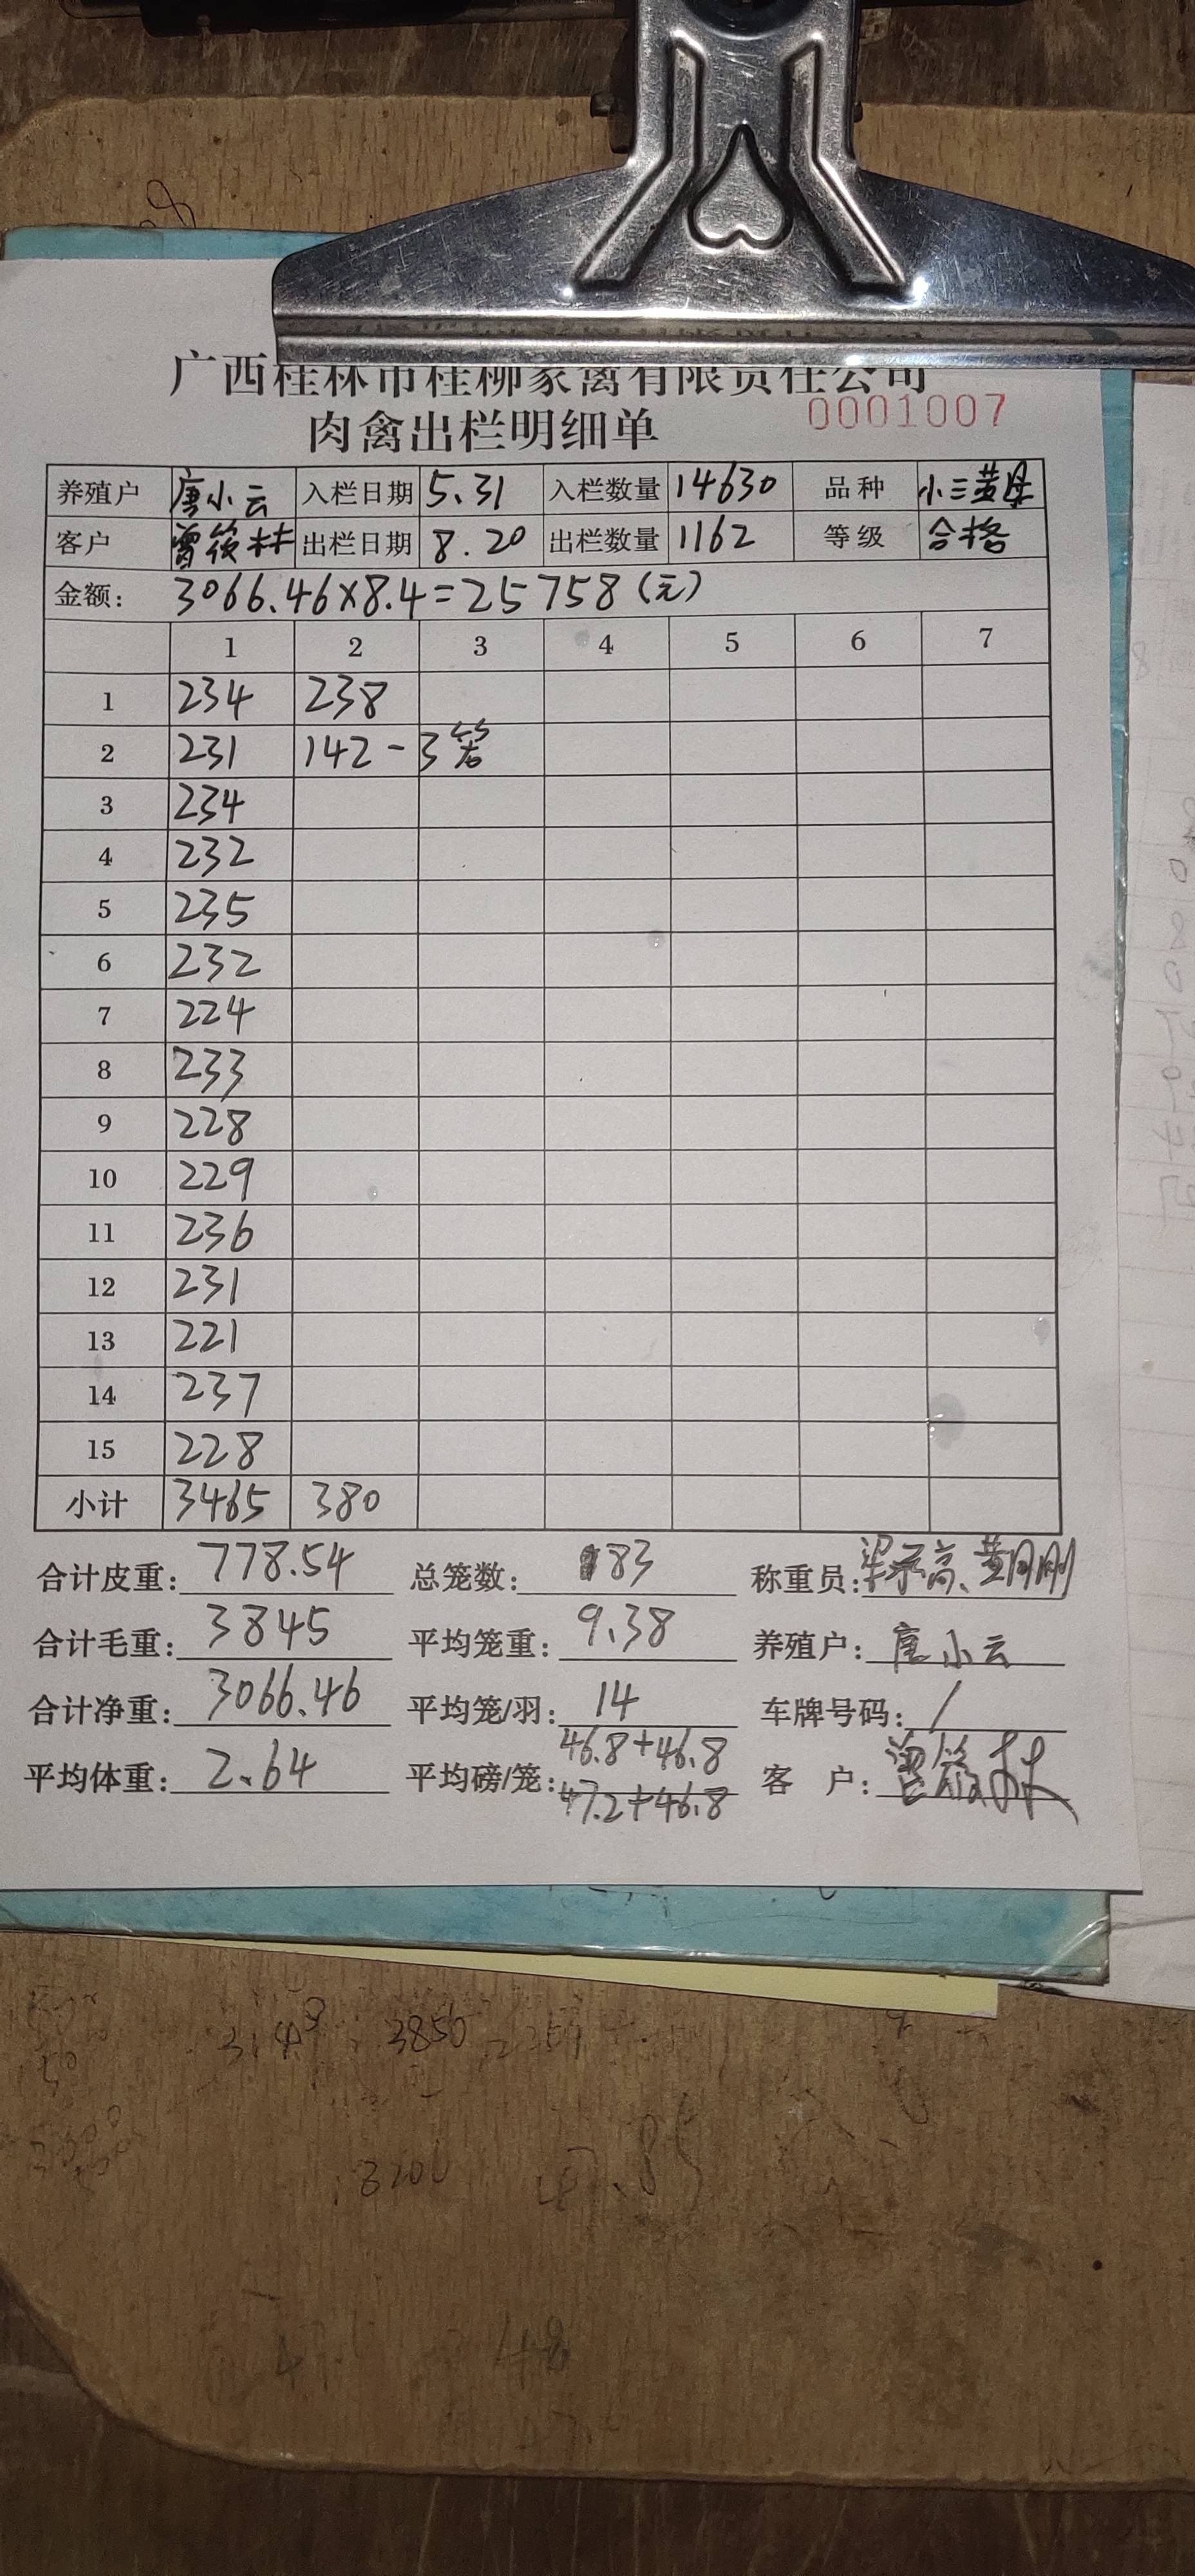 广西桂林市桂柳家禽有限责任公司
肉禽出栏明细单 0001007
养殖户 唐小云 入栏日期 5.31 入栏数量 14630 品种 小三黄母
客户 曾筱林 出栏日期 8.20 出栏数量 1162 等级 合格
金额: 3066.46×8.4=25758(元)
1 2 3 4 5 6 7
1 234 238
2 231 142-3笼
3 234
4 232
5 235
6 232
7 224
8 233
9 228
10 229
11 236
12 231
13 221
14 237
15 228
小计 3465 380
合计皮重: 778.54 总笼数: 83 称重员:
合计毛重: 3845 平均笼重: 9.38 养殖户: 唐小云
合计净重: 3066.46 平均笼/羽: 14 车牌号码: /
平均体重: 2.64 平均磅/笼: 46.8+46.8 客 户: 曾筱林
47.2+46.8
3850
3200